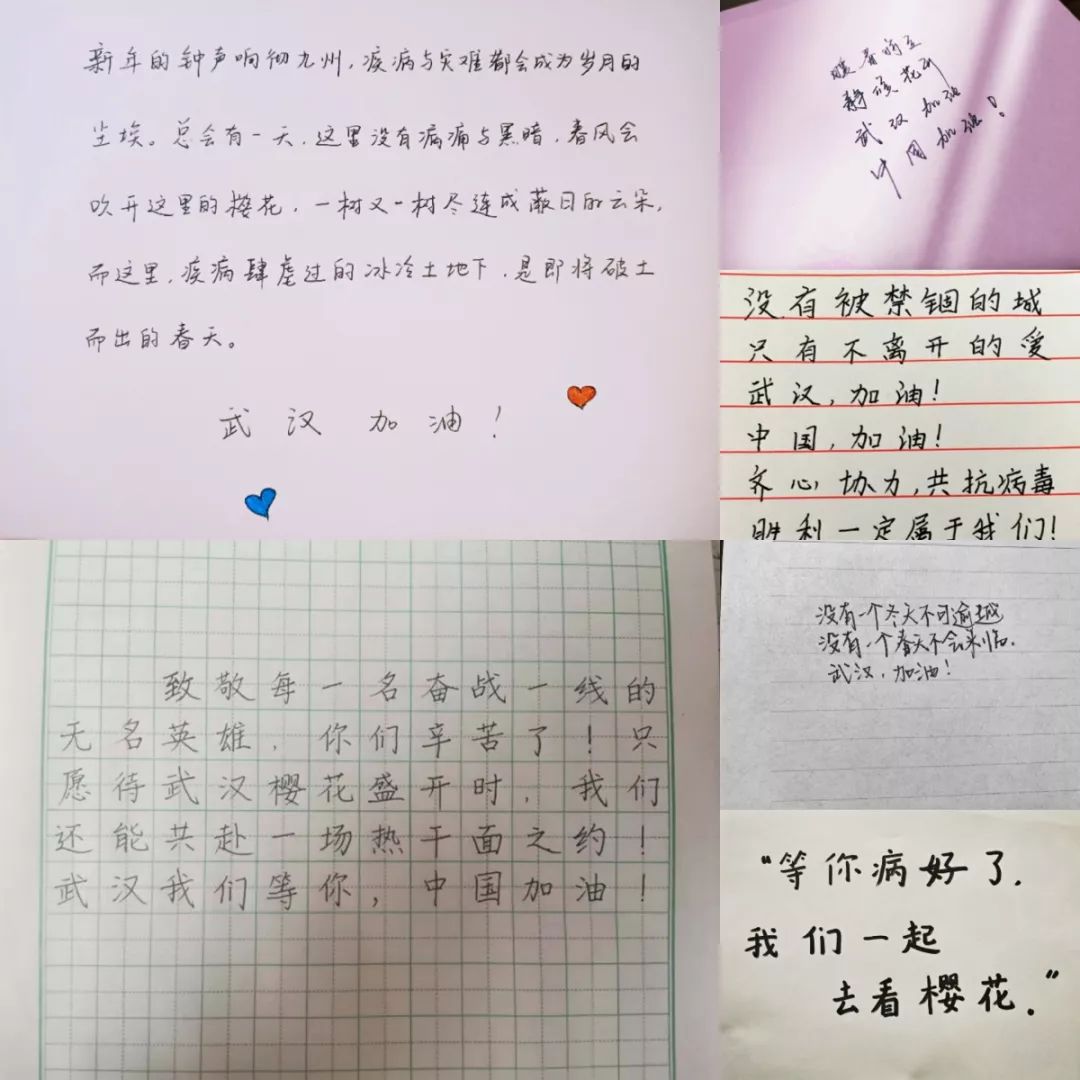 新年的钟声响彻九州，疾病与灾难都会成为岁月的
尘埃。总会有一天，这里没有病痛与黑暗，春风会
吹开这里的樱花，一树又一树尽连成蔽日的云朵，
而这里，疾病肆虐过的冰冷土地下，是即将破土
而出的春天。
武汉加油！
暖春将至
静候花开
武汉加油
中国加油！
没有被禁锢的城
只有不离开的愛
武汉，加油！
中国，加油！
齐心协力，共抗病毒
胜利一定属于我们！
致敬每一名奋战一线的
无名英雄，你们辛苦了！只
愿待武汉樱花盛开时，我们
还能共赴一场热干面之约！
武汉我们等你，中国加油！
没有一个冬天不可逾越
没有一个春天不会来临.
武汉，加油！
“等你病好了.
我们一起
去看樱花.”